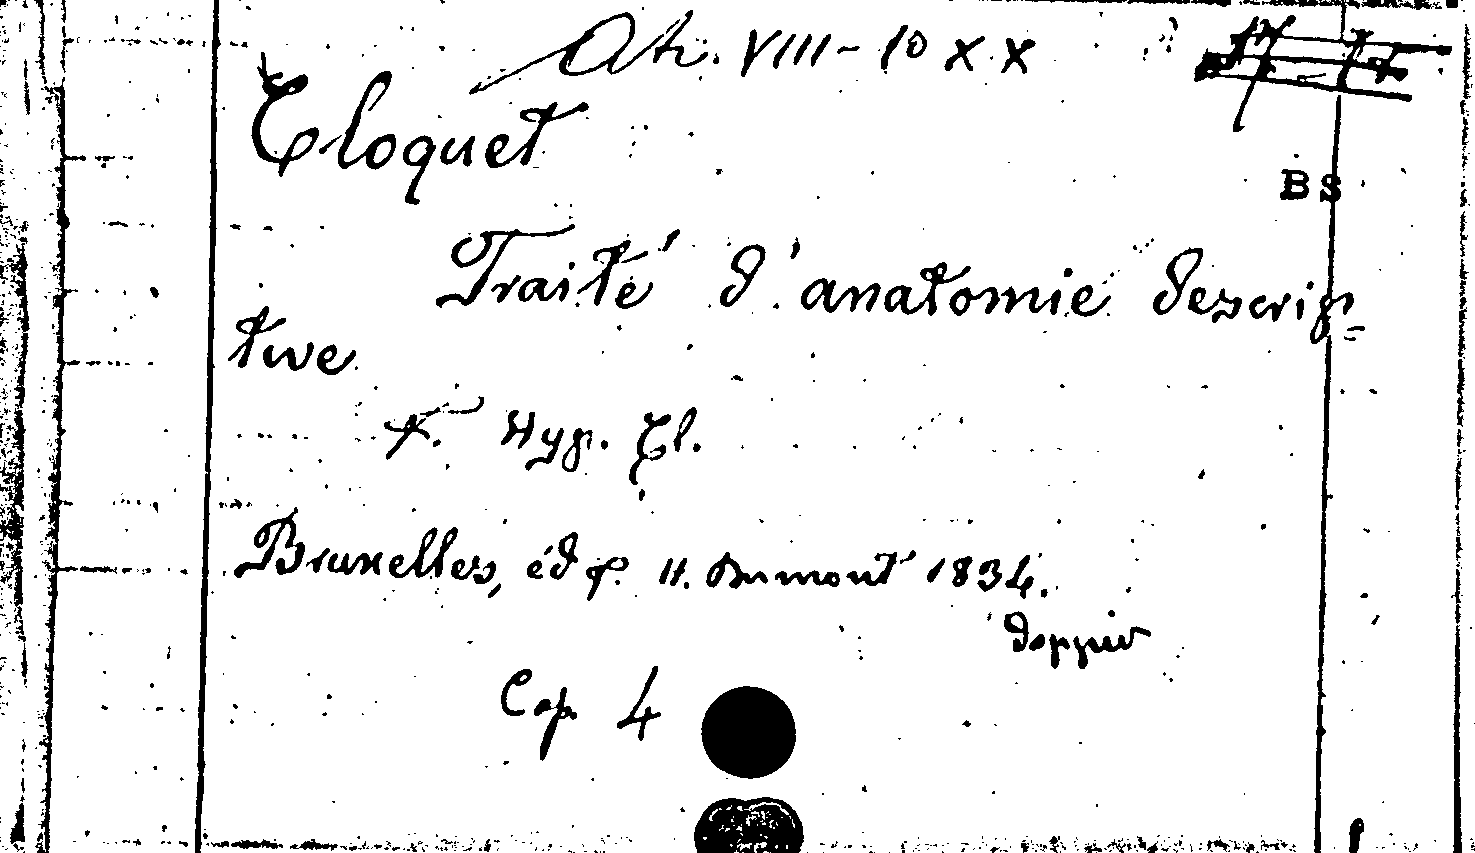 At. VIII - 10 XX
Cloquet
BS
Traité d'anatomie descrip=
tive
F. Hyp. Cl.
Bruxelles, éd p. H. Dumont 1834.
doppio
Cop 4